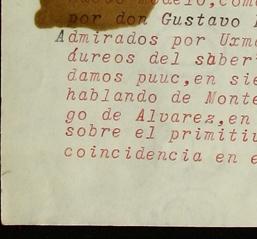 modelo, com
por don Gustavo
Admirados por Uxm
áureos del saber
damos puuc,en sie
hablando de Monte
go de Alvarez,en
sobre el primitiv
coincidencia en e